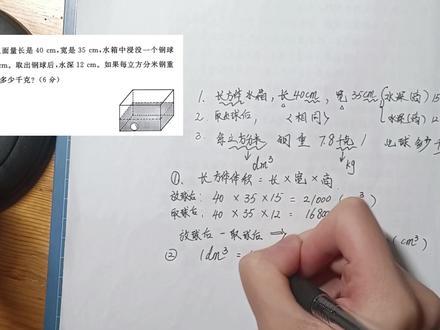 面量长是 40 cm,宽是 35 cm,水箱中浸没一个钢球
cm。取出钢球后,水深 12 cm。如果每立方分米钢重
多少千克?(6 分)
1. 长方体水箱,长40cm,宽35cm 水深(高)15
2. 取出球后, <相同> 水深(高)12
3. 每立方分米 钢重 7.8 千克!
dm³ kg
①. 长方体体积 = 长×宽×高
放球后: 40 × 35 × 15 = 21000
取球后: 40 × 35 × 12 = 16800
放球后 - 取球后 ⇒ (cm³)
② 1dm³ =